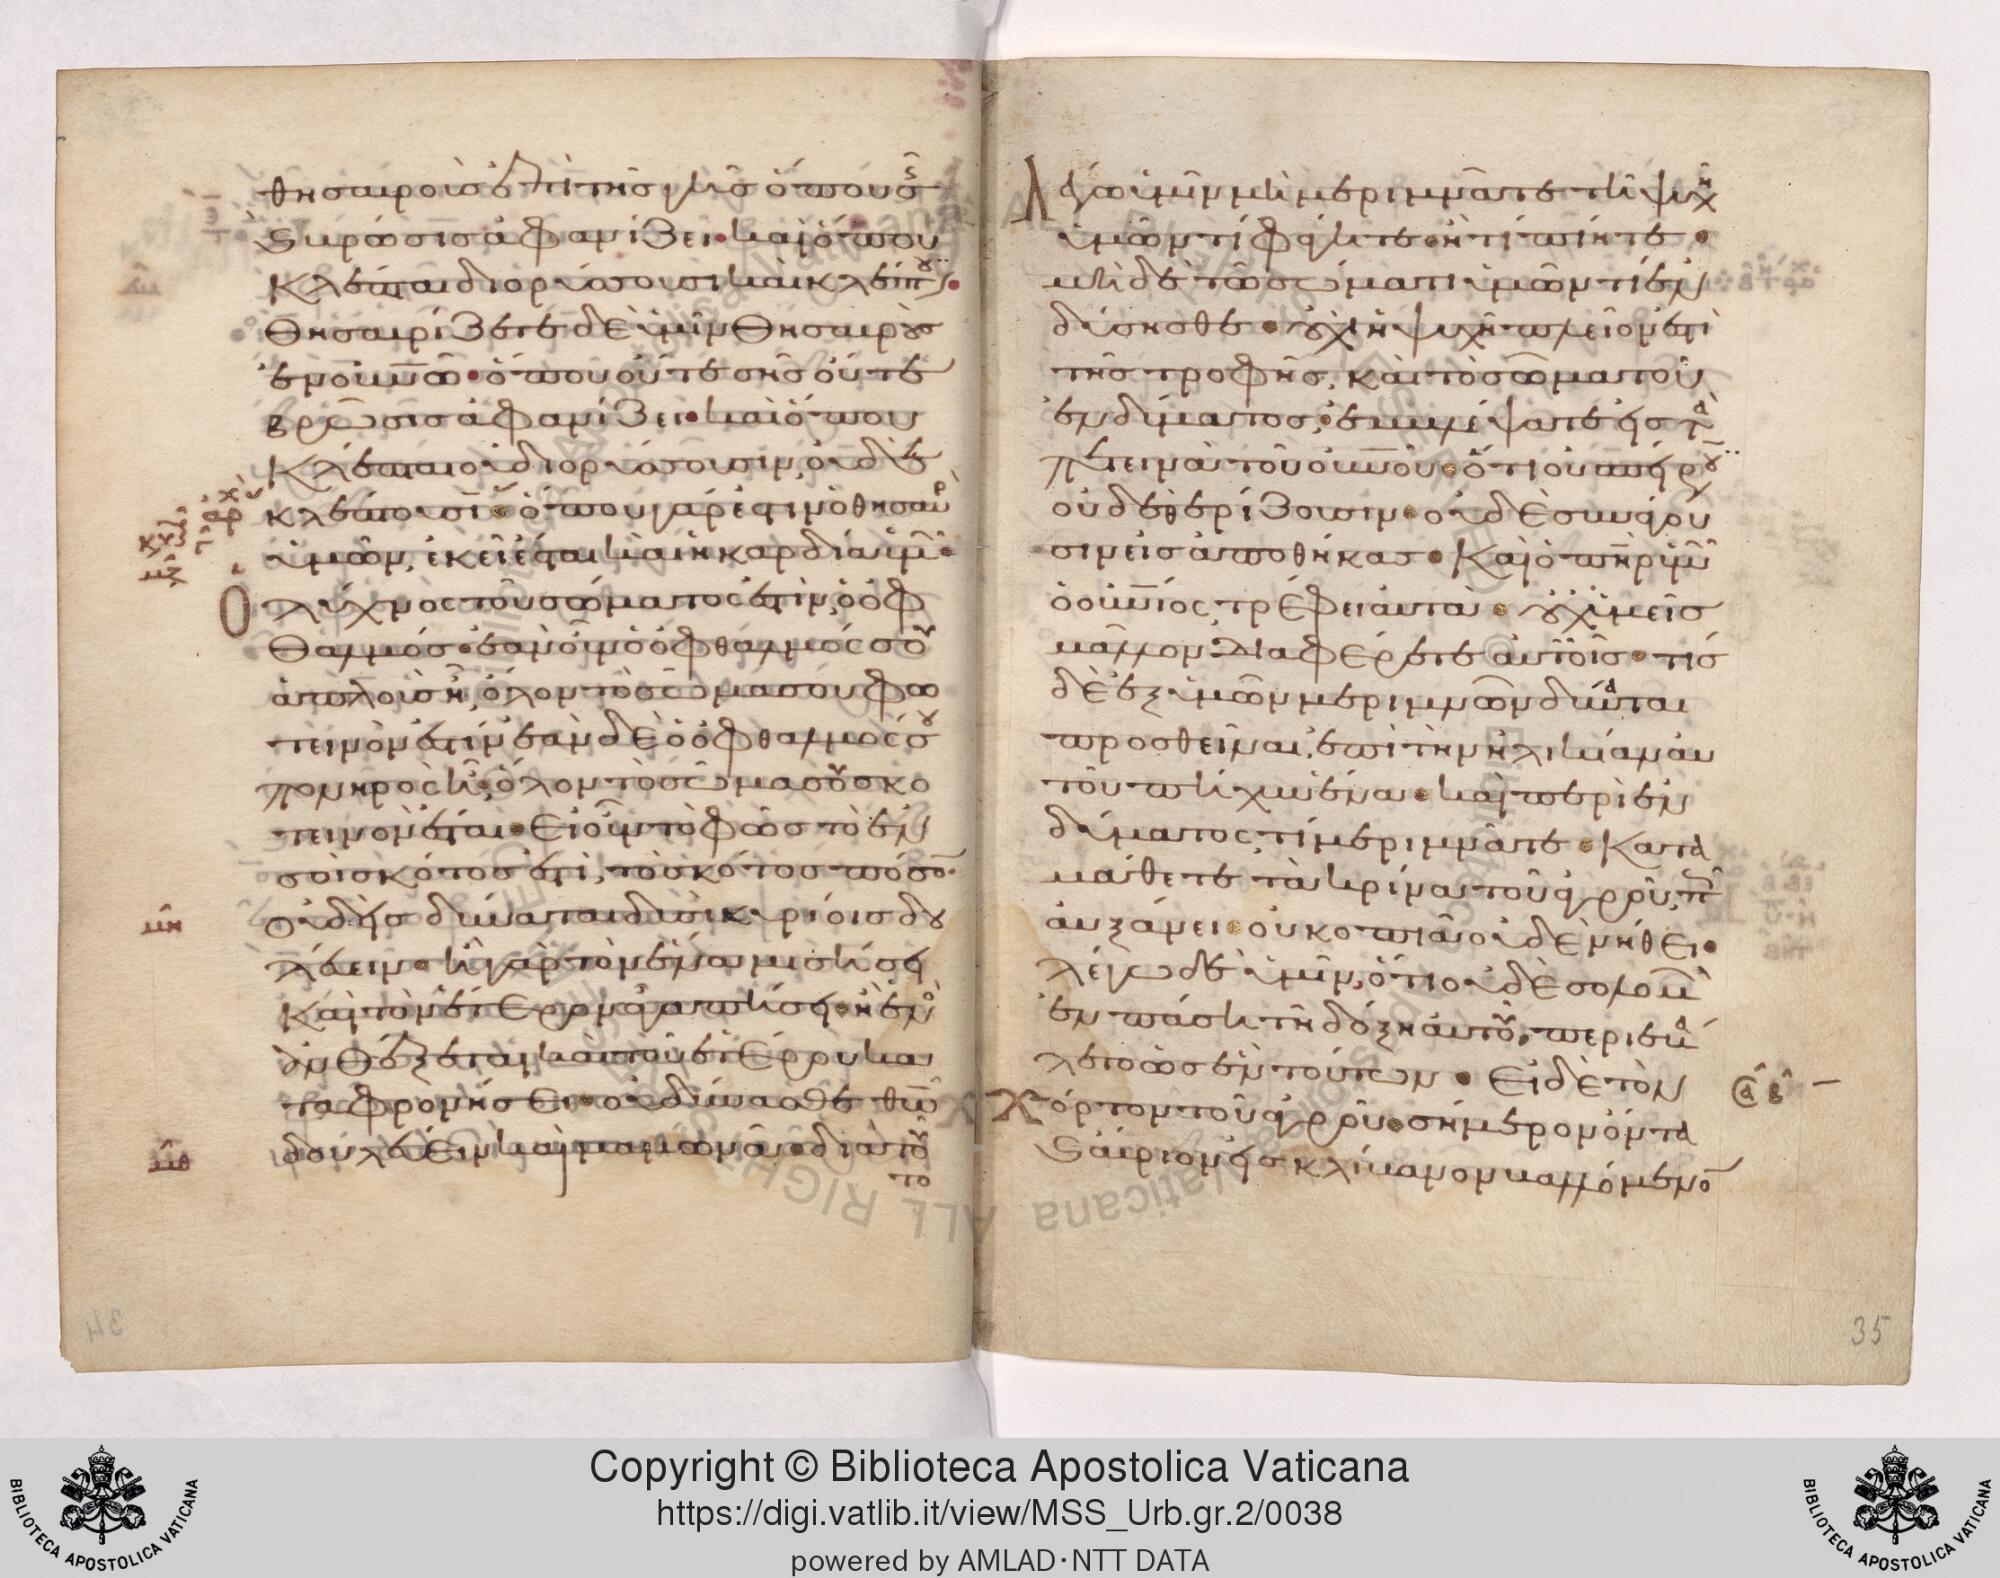 θησαυροὺσ ἐπὶ τῆσ γῆσ ὅπου σὴσ
βρῶσισ ἀφανίζει· καὶ ὅπου
κλέπται διορύσσουσι καὶ κλέπτου
θησαυρίζετε δὲ ὑμῖν θησαυροὺσ
ἐν οὐνῶ· ὅπου οὔτε σὴσ οὔτε
βρῶσισ ἀφανίζει· καὶ ὅπου
κλέπται οὐ διορύσσουσιν, οὐδὲ
κλέπτουσι· ὅπου γάρ ἐστιν ὁ θησαυρ
ὑμῶν, ἐκεῖ ἔσται καὶ ἡ καρδία ὑμῶ·
Ὁ λύχνος τοῦ σώματος ἐστὶν, ὁ ὀφ
θαλμόσ· ἐὰν οὖν ὁ ὀφθαλμός σου
ἁπλοῦσ ᾖ, ὅλον τὸ σῶμα σου φω
τεινὸν ἐστίν· ἐὰν δὲ ὁ ὀφθαλμός σου
πονηρὸς ᾖ, ὅλον τὸ σῶμα σου σκο
τεινον ἔσται· εἰ οὖν τὸ φῶσ τὸ ἐν
σοὶ σκότοσ ἐστὶ, τὸ σκότοσ πόσο·
οὐδεὶσ δύναται δυσὶ κυρίοισ δου
λεύειν· ἢ γὰρ τὸν ἕνα μισήσει
καὶ τὸν ἕτερον ἀγαπήσει· ἢ ἑνὸ
ἀνθέξεται καὶ τοῦ ἑτέρου κα
ταφρονήσει· οὐ δύνασθε θῶ
δουλεύειν καὶ μαμωνᾶ· διὰ τοῦ
το
Λέγω ὑμῖν μὴ μεριμνᾶτε τῆ ψυχῆ
ὑμῶν τί φάγητε· ἢ τί πίητε·
μηδὲ τῶ σώματι ὑμῶν τί ἐν
δύσησθε· οὐχὶ ἡ ψυχὴ πλεῖον ἐστὶ
τῆσ τροφῆσ, καὶ τὸ σῶμα τοῦ
ἐνδύματοσ, ἐμβλέψατε εἰσ τὰ
πετεινὰ τοῦ οὐνοῦ· ὅτι οὐ σπείρου
οὐδὲ θερίζουσιν· οὐδὲ συνάγου
σιν εἰσ ἀποθήκασ· καὶ ὁ πηρ ὑμῶ
ὁ οὐνιος τρέφει αὐτὰ· οὐχ ὑμεῖσ
μᾶλλον διαφέρετε αὐτοῖσ· τίσ
δὲ ἐξ ὑμῶν μεριμνῶν δύναται
προσθεῖναι, ἐπὶ τὴν ἡλικίαν αὐ
τοῦ πῆχυν ἕνα· καὶ περὶ ἐν
δύματος, τί μεριμνᾶτε· κατα
μάθετε τὰ κρίνα τοῦ ἀγροῦ, πῶ
αὐξάνει· οὐ κοπιᾶ οὐδὲ νήθει·
λέγω δὲ ὑμῖν, ὅτι οὐδὲ σολομὼ
ἐν πάση τῆ δόξη αὐτοῦ, περιεβά
λετο ὡσ ἓν τούτων· εἰ δὲ τὸν
χόρτον τοῦ ἀγροῦ· σήμερον ὄντα
καὶ αὔριον εἰσ κλίβανον βαλλόμενο
35
34
Copyright © Biblioteca Apostolica Vaticana
https://digi.vatlib.it/view/MSS_Urb.gr.2/0038
powered by AMLAD·NTT DATA
BIBLIOTECA APOSTOLICA VATICANA
BIBLIOTECA APOSTOLICA VATICANA